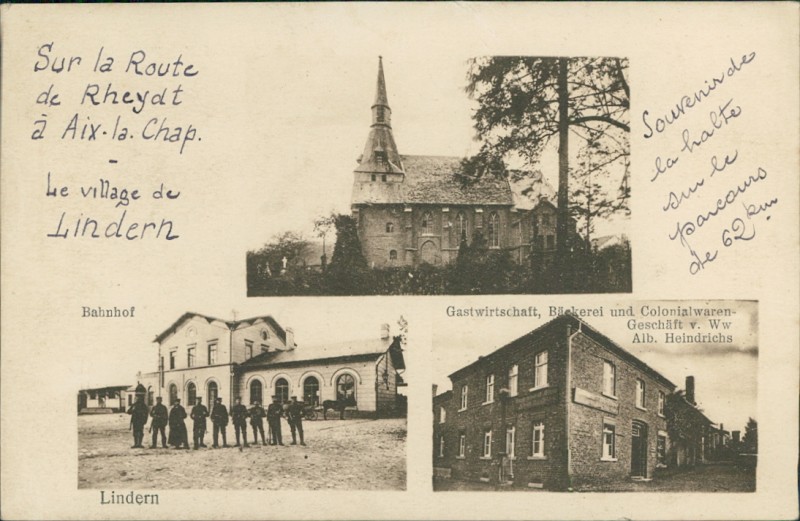 Sur la Route
de Rheydt
à Aix-la-Chap.
-
Le village de
Lindern
Souvenir de
la halte
sur le
parcours
de 62 km
Bahnhof
Gastwirtschaft, Bäckerei und Colonialwaren-
Geschäft v. Ww
Alb. Heindrichs
Lindern